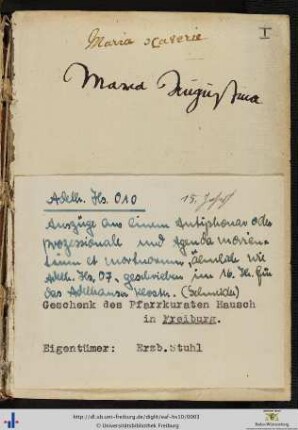 I
Maria Xaverie
Maria Augustina
Adelh. Hs. 010
15. Jhdt
Auszüge aus einem Antiphonar oder
Prozessionale und Agenda morien-
tium et mortuorum, ähnlich wie
Adelh. Hs. 07, geschrieben im 16. Jh. für
das Adelhauser Kloster. (Schmidt)
Geschenk des Pfarrkuraten Hausch
in Freiburg.
Eigentümer: Erzb.Stuhl
http://dl.ub.uni-freiburg.de/diglit/eaf-hs10/0003
© Universitätsbibliothek Freiburg
Baden-Württemberg